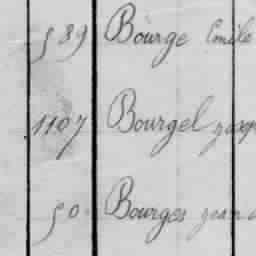 589 Bourge Emile
1107 Bourgel
50 Bourges jean